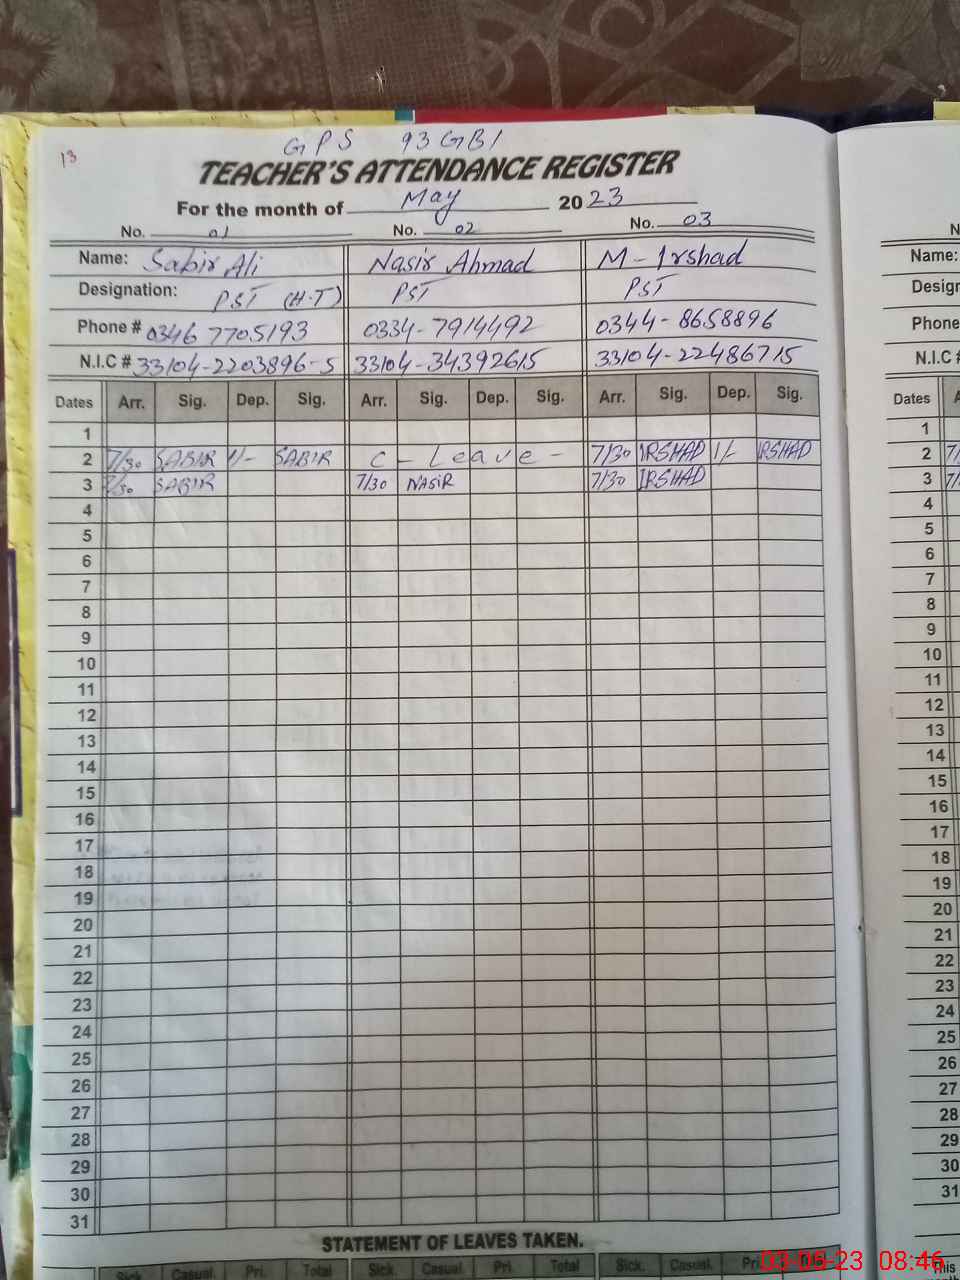 13
GPS 93 GB1
TEACHER'S ATTENDANCE REGISTER
For the month of May 2023
No. 01 No. 02 No. 03
Name: Sabir Ali Nasir Ahmad M-Irshad
Designation: PST (H.T) PST PST
Phone # 0346 7705193 0334-7914492 0344-8658896
N.I.C # 33104-2203896-5 33104-34392615 33104-22486715
Dates Arr. Sig. Dep. Sig. Arr. Sig. Dep. Sig. Arr. Sig. Dep. Sig.
1
2 7/30 SABIR 1/- SABIR C-Leave- 7/30 IRSHAD 1/- IRSHAD
3 7/30 SABIR 7/30 NASIR 7/30 IRSHAD
4
5
6
7
8
9
10
11
12
13
14
15
16
17
18
19
20
21
22
23
24
25
26
27
28
29
30
31
STATEMENT OF LEAVES TAKEN.
Sick. Casual. Pri. Total Sick. Casual. Pri. Total Sick. Casual.
Name:
Phone
N.I.C #
Dates
1
2 7/
3
4
5
6
7
8
9
10
11
12
13
14
15
16
17
18
19
20
21
22
23
24
25
26
27
28
29
30
31
This
03-05-23 08:46